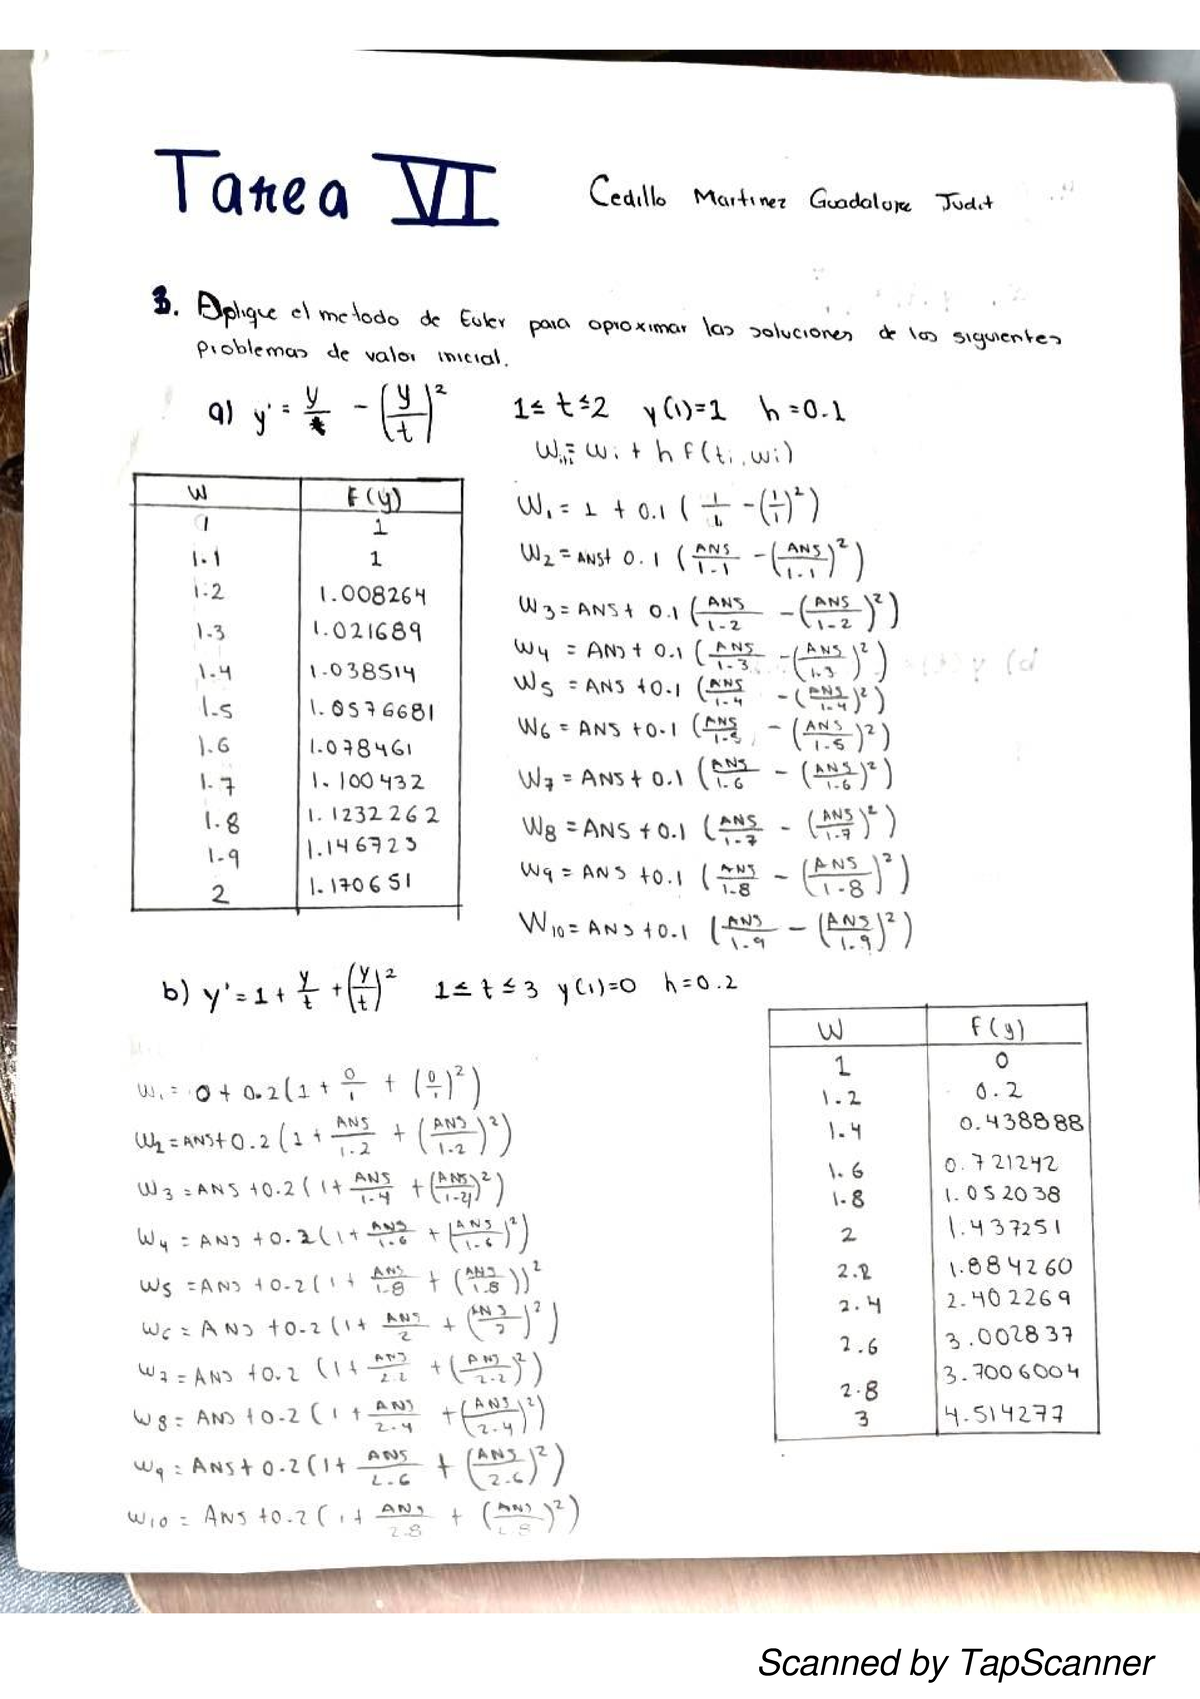 Tarea VI
Cedillo Martinez Guadalupe Judit
3. Aplique el metodo de Euler para aproximar las soluciones de los siguientes
problemas de valor inicial.
a) y' = y/t - (y/t)² 1 ≤ t ≤ 2 y(1)=1 h=0.1
Wi+1 = Wi + h F(ti, wi)
W F(y)
1 1
1.1 1
1.2 1.008264
1.3 1.021689
1.4 1.038514
1.5 1.0576681
1.6 1.078461
1.7 1.100432
1.8 1.1232262
1.9 1.146723
2 1.170651
W1 = 1 + 0.1 (1/1 - (1/1)²)
W2 = ANS + 0.1 (ANS/1.1 - (ANS/1.1)²)
W3 = ANS + 0.1 (ANS/1.2 - (ANS/1.2)²)
W4 = ANS + 0.1 (ANS/1.3 - (ANS/1.3)²)
W5 = ANS + 0.1 (ANS/1.4 - (ANS/1.4)²)
W6 = ANS + 0.1 (ANS/1.5 - (ANS/1.5)²)
W7 = ANS + 0.1 (ANS/1.6 - (ANS/1.6)²)
W8 = ANS + 0.1 (ANS/1.7 - (ANS/1.7)²)
W9 = ANS + 0.1 (ANS/1.8 - (ANS/1.8)²)
W10 = ANS + 0.1 (ANS/1.9 - (ANS/1.9)²)
b) y' = 1 + y/t + (y/t)² 1 ≤ t ≤ 3 y(1)=0 h=0.2
W1 = 0 + 0.2 (1 + 0/1 + (0/1)²)
W2 = ANS + 0.2 (1 + ANS/1.2 + (ANS/1.2)²)
W3 = ANS + 0.2 (1 + ANS/1.4 + (ANS/1.4)²)
W4 = ANS + 0.2 (1 + ANS/1.6 + (ANS/1.6)²)
W5 = ANS + 0.2 (1 + ANS/1.8 + (ANS/1.8))²
W6 = ANS + 0.2 (1 + ANS/2 + (ANS/2)²)
W7 = ANS + 0.2 (1 + ANS/2.2 + (ANS/2.2)²)
W8 = ANS + 0.2 (1 + ANS/2.4 + (ANS/2.4)²)
W9 = ANS + 0.2 (1 + ANS/2.6 + (ANS/2.6)²)
W10 = ANS + 0.2 (1 + ANS/2.8 + (ANS/2.8)²)
W F(y)
1 0
1.2 0.2
1.4 0.438888
1.6 0.721242
1.8 1.052038
2 1.437251
2.2 1.884260
2.4 2.402269
2.6 3.002837
2.8 3.7006004
3 4.514277
Scanned by TapScanner